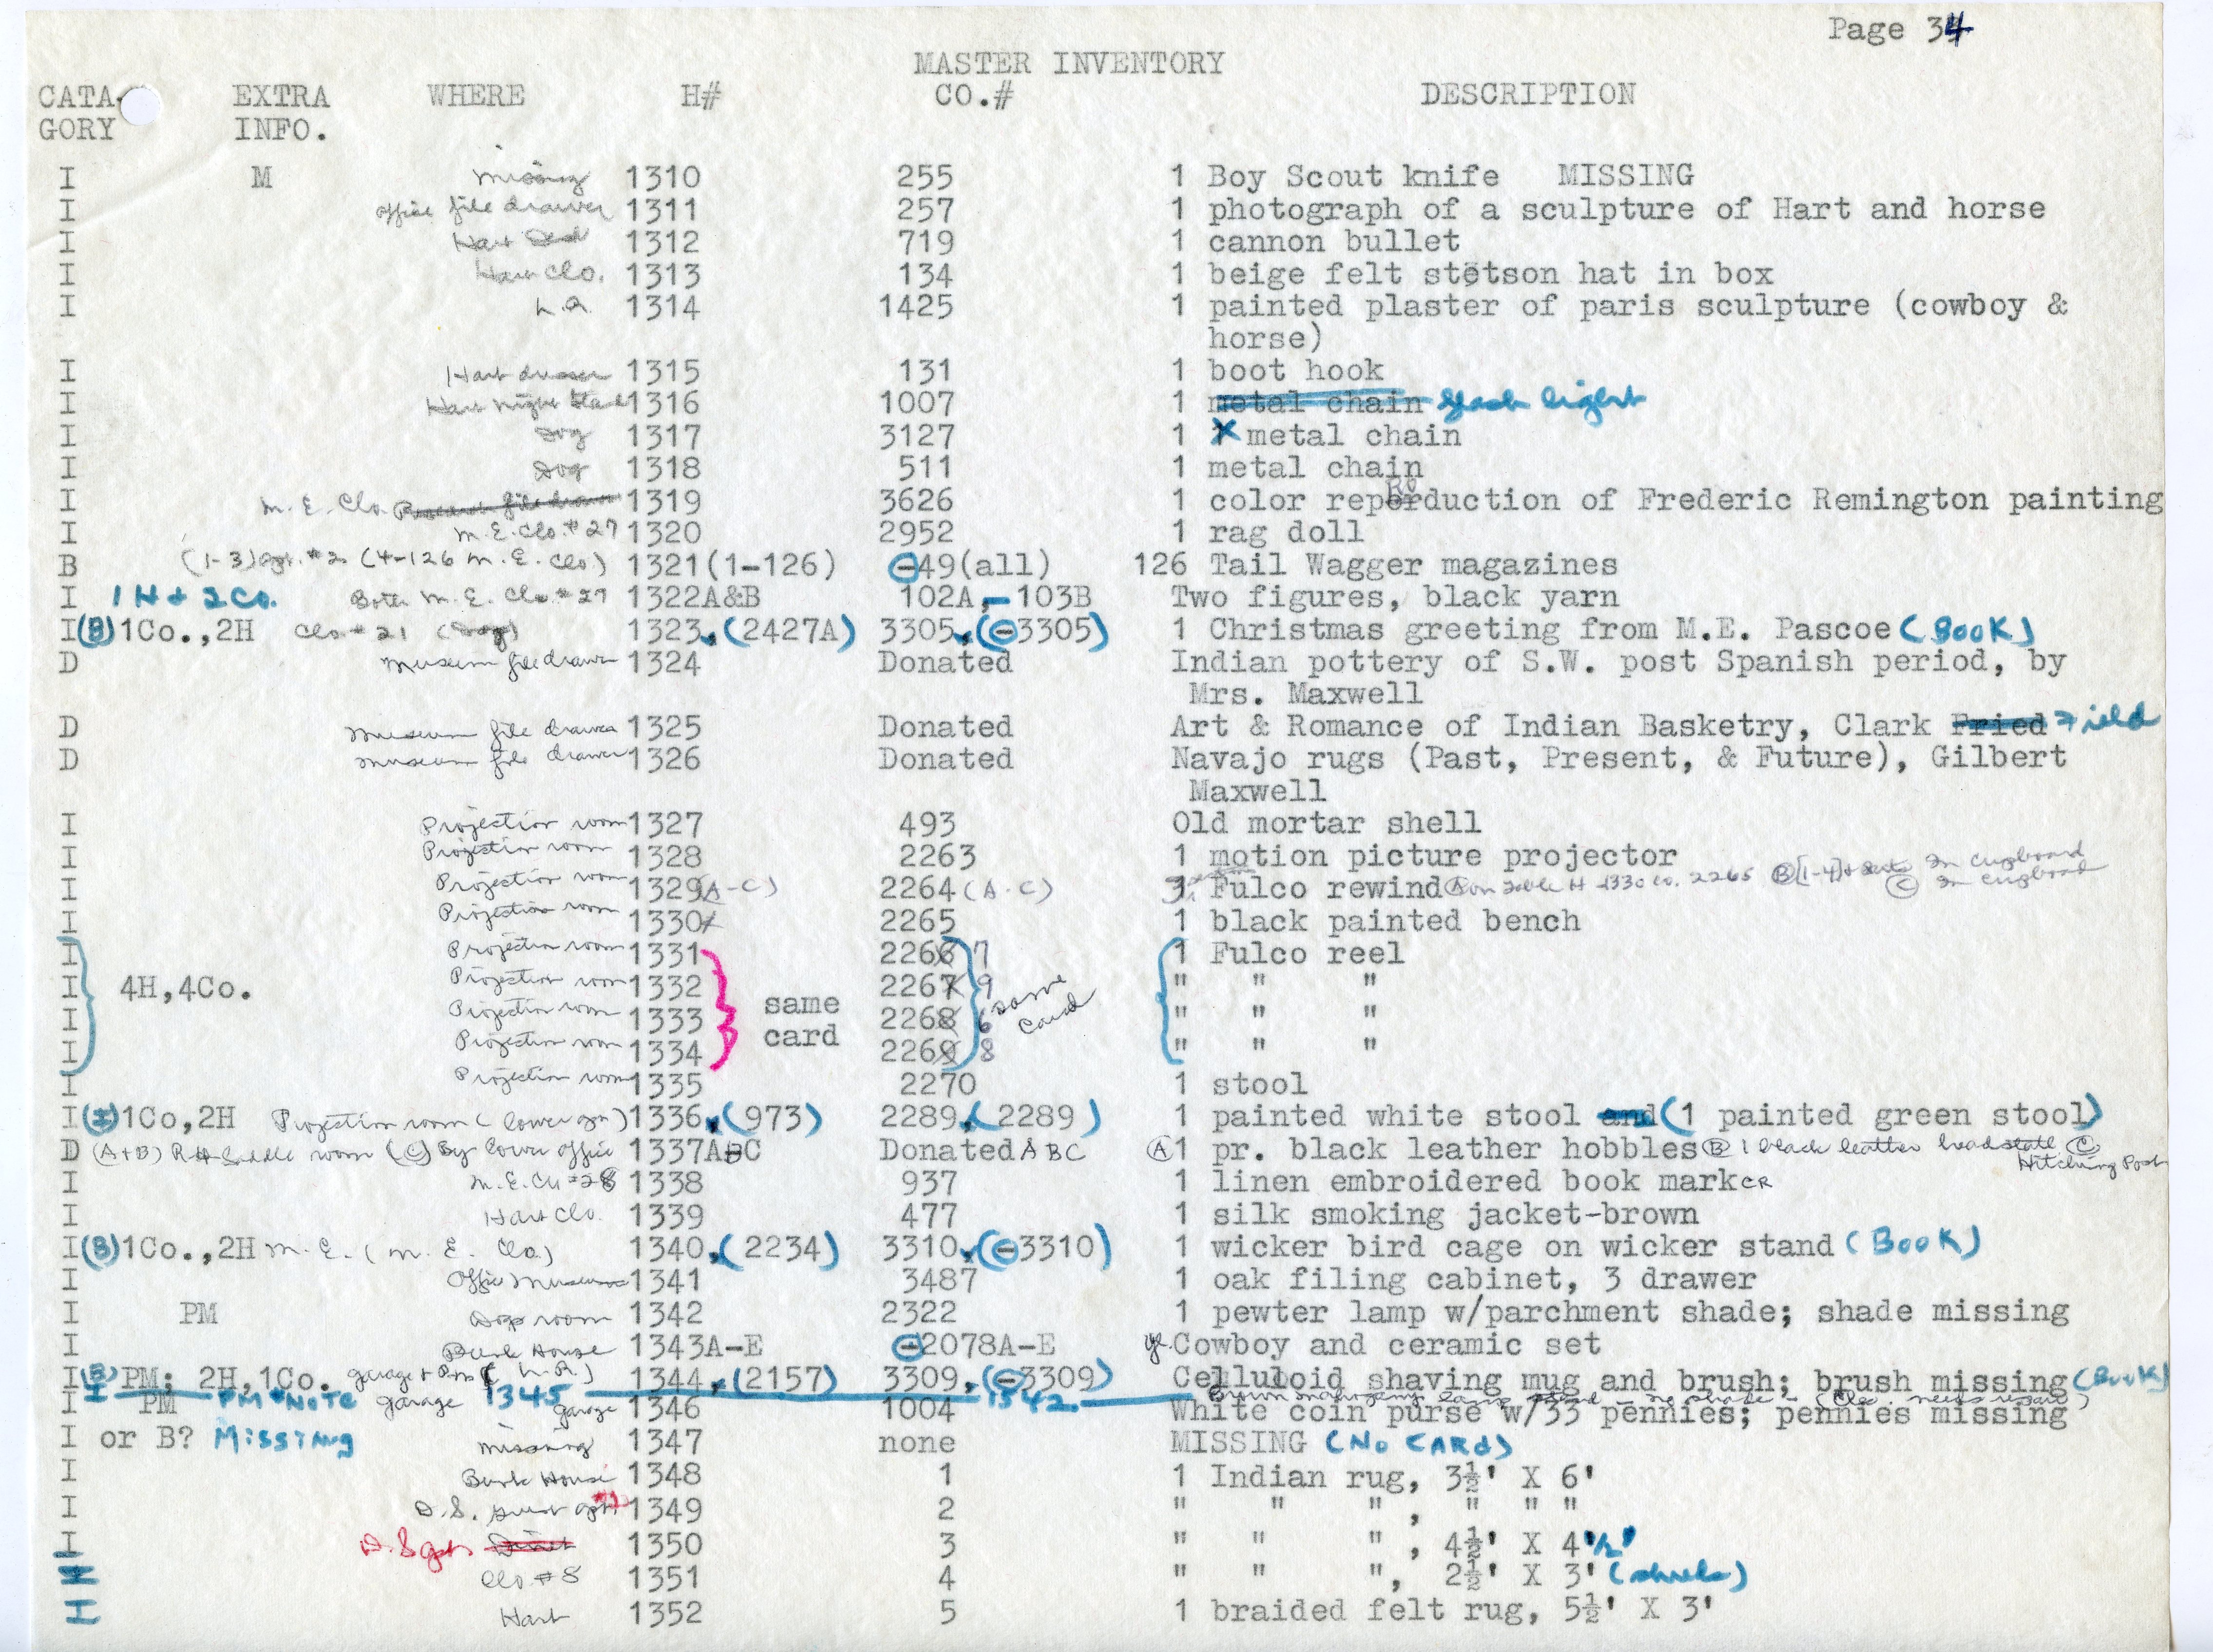 Page 34
MASTER INVENTORY
CATA- EXTRA WHERE H# CO.# DESCRIPTION
GORY INFO.
I M missing 1310 255 1 Boy Scout knife MISSING
I office file drawer 1311 257 1 photograph of a sculpture of Hart and horse
I Hart 1312 719 1 cannon bullet
I Hart Clo. 1313 134 1 beige felt stetson hat in box
I L.R. 1314 1425 1 painted plaster of paris sculpture (cowboy &
horse)
I Hart dresser 1315 131 1 boot hook
I Hart night stand 1316 1007 1 metal chain flash light
I Dog 1317 3127 1 X metal chain
I Dog 1318 511 1 metal chain
I M.E. Clo. 1319 3626 1 color reproduction of Frederic Remington painting
I M.E. Clo. #27 1320 2952 1 rag doll
B (1-3) apt. #2 (4-126 M.E. Clo.) 1321(1-126) -49(all) 126 Tail Wagger magazines
I 1H + 2Co. Both M.E. Clo #27 1322A&B 102A, - 103B Two figures, black yarn
I(B) 1Co.,2H Clo #21 (Dog) 1323,(2427A) 3305,(-3305) 1 Christmas greeting from M.E. Pascoe (BOOK)
D Museum file drawer 1324 Donated Indian pottery of S.W. post Spanish period, by
Mrs. Maxwell
D museum file drawer 1325 Donated Art & Romance of Indian Basketry, Clark Fried Field
D museum file drawer 1326 Donated Navajo rugs (Past, Present, & Future), Gilbert
Maxwell
I Projection room 1327 493 Old mortar shell
I Projection room 1328 2263 1 motion picture projector
I Projection room 1329(A-C) 2264(A-C) 3 Fulco rewind (A) on table H 1330 Co. 2265 (B)[1-4] In cupboard (C) In cupboard
I Projection room 1330 2265 1 black painted bench
I Projection room 1331 2266 7 1 Fulco reel
I 4H,4Co. Projection room 1332 same 2267 9 same " " "
I Projection room 1333 card 2268 6 card " " "
I Projection room 1334 2269 8 " " "
I Projection room 1335 2270 1 stool
I(I) 1Co,2H Projection room (lower gn) 1336,(973) 2289,(2289) 1 painted white stool and (1 painted green stool)
D (A+B) RH Saddle room (C) By lower office 1337ABC Donated ABC (A) 1 pr. black leather hobbles (B) 1 black leather headstall (C) Hitching Post
I M.E. Clo #28 1338 937 1 linen embroidered book mark CR
I Hart Clo. 1339 477 1 silk smoking jacket-brown
I(B) 1Co.,2H M.E. (M.E. Clo.) 1340,(2234) 3310,(-3310) 1 wicker bird cage on wicker stand (BOOK)
I Office Museum 1341 3487 1 oak filing cabinet, 3 drawer
I PM Dog room 1342 2322 1 pewter lamp w/parchment shade; shade missing
I Bunk House 1343A-E -2078A-E Cowboy and ceramic set
I(B) PM; 2H,1Co. garage + Pm (L.R.) 1344,(2157) 3309,(-3309) Celluloid shaving mug and brush; brush missing (BOOK)
I PM + NOTE garage 1345 1542 Brown mahogany lamp stand - no shade - (Elec. needs repair)
I PM garage 1346 1004 White coin purse w/33 pennies; pennies missing
I or B? Missing missing 1347 none MISSING (No CARd)
I Bunk House 1348 1 1 Indian rug, 3½' X 6'
I D.S. guest apt 1349 2 " " ", " " "
I D.S. 1350 3 " " ", 4½' X 4½'
I Clo. #8 1351 4 " " ", 2½' X 3' (shreds)
I Hart 1352 5 1 braided felt rug, 5½' X 3'